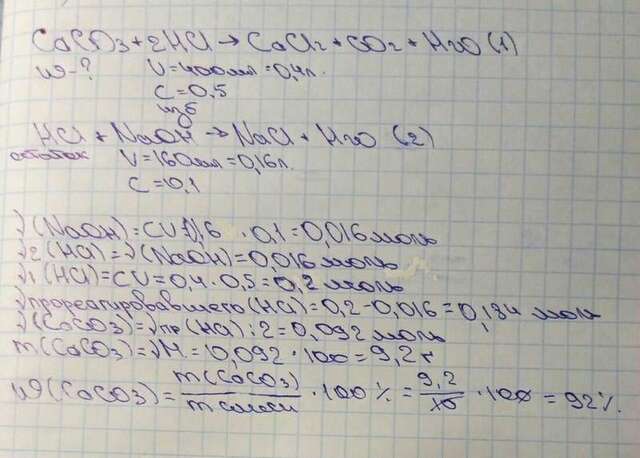 CaCO3 + 2HCl → CaCl2 + CO2 + H2O (1)
ω-? V = 400мл = 0,4л.
C = 0,5
изб
HCl + NaOH → NaCl + H2O (2)
остаток V = 160мл = 0,16л.
C = 0,1
ν(NaOH) = CV = 0,16 · 0,1 = 0,016 моль
ν2(HCl) = ν(NaOH) = 0,016 моль
ν1(HCl) = CV = 0,4 · 0,5 = 0,2 моль
ν прореагировавшего (HCl) = 0,2 - 0,016 = 0,184 моль
ν(CaCO3) = νпр(HCl) : 2 = 0,092 моль
m(CaCO3) = νM = 0,092 · 100 = 9,2 г
ω(CaCO3) = m(CaCO3) / m смеси · 100 % = 9,2 / 10 · 100 = 92 %.